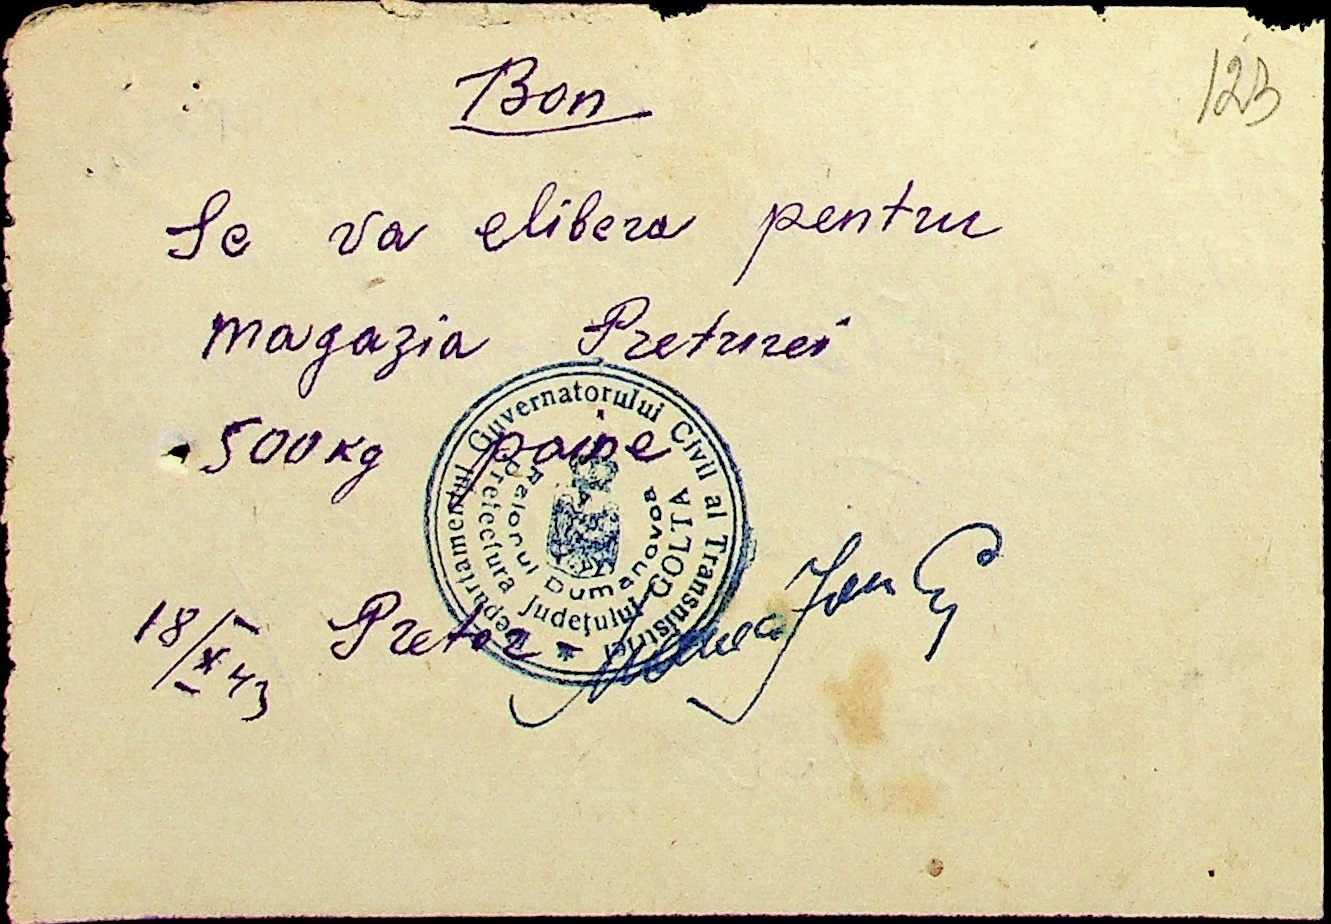 123
Bon
Se va elibera pentru
magazia Preturei
500 kg paine
Departamentul Guvernatorului Civil al Transnistriei
Prefectura Județului GOLTA
Raionul Dumanovca
18/X 43 Pretor